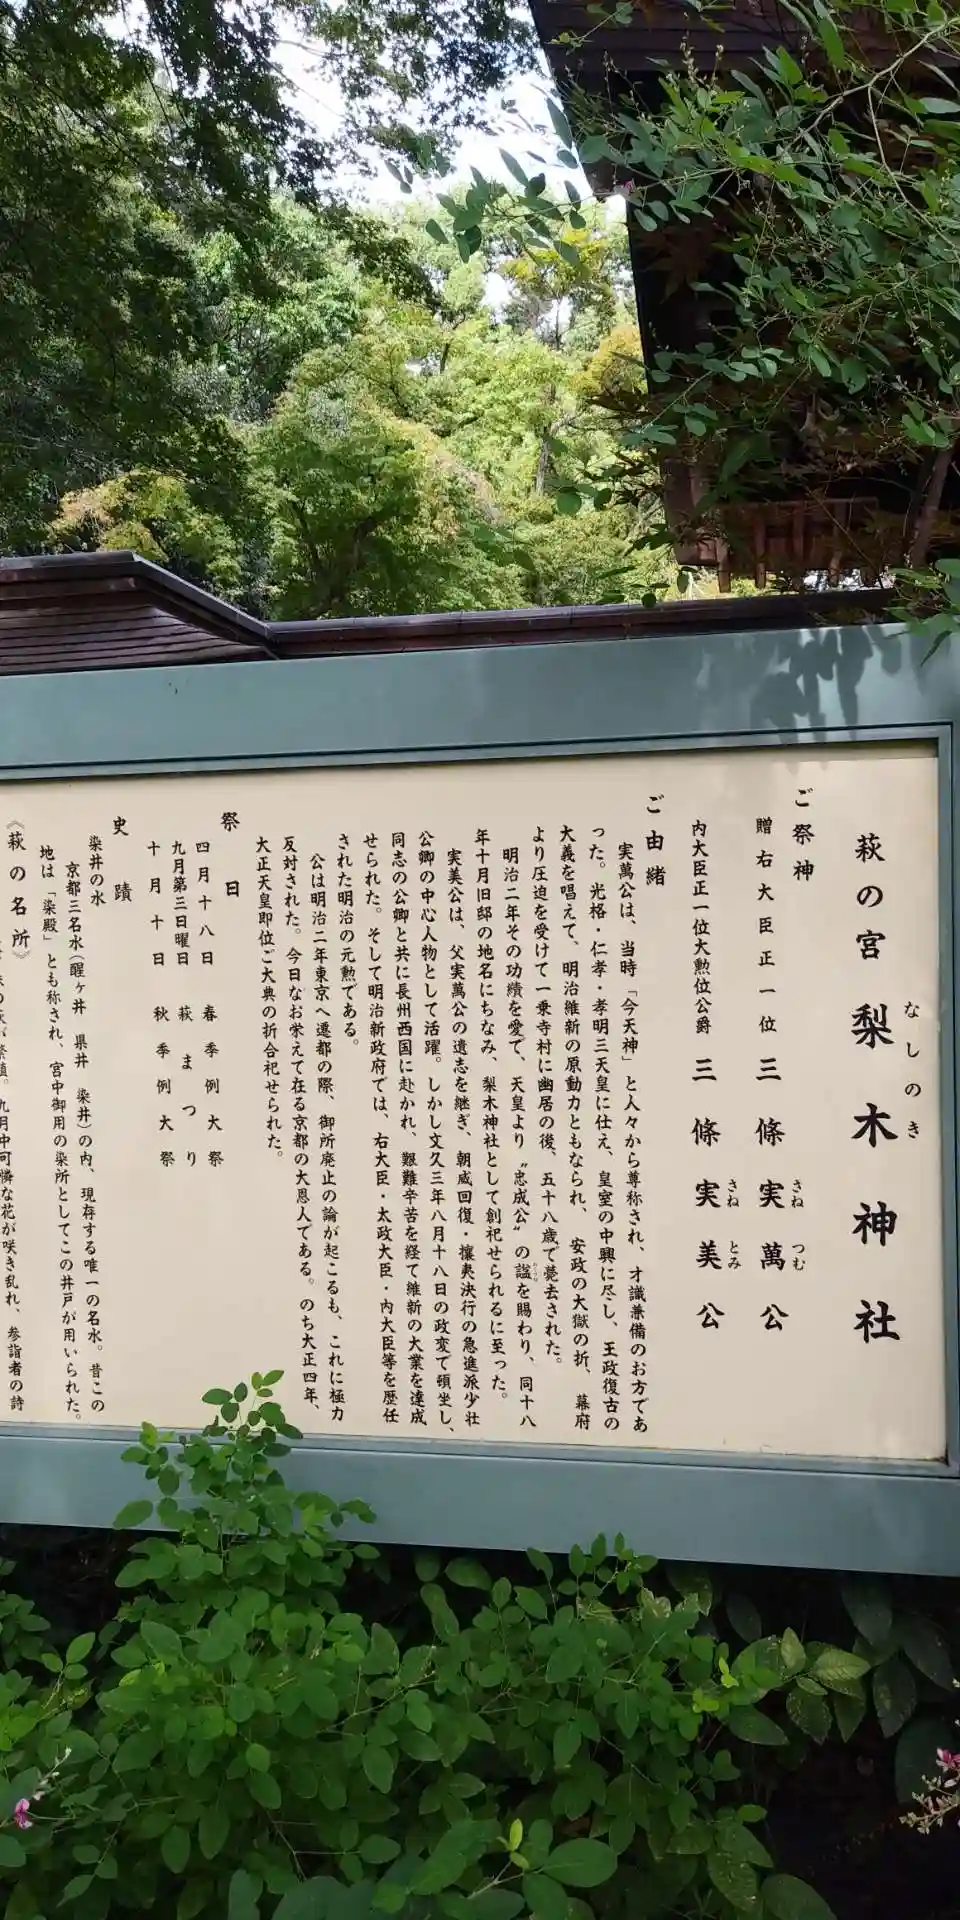 萩の宮 梨木神社
なしのき
ご祭神
贈右大臣正一位 三條実萬公
さね つむ
内大臣正一位大勲位公爵 三條実美公
さね とみ
ご由緒
実萬公は、当時「今天神」と人々から尊称され、才識兼備のお方であ
った。光格・仁孝・孝明三天皇に仕え、皇室の中興に尽し、王政復古の
大義を唱えて、明治維新の原動力ともなられ、安政の大獄の折、幕府
より圧迫を受けて一乗寺村に幽居の後、五十八歳で薨去された。
明治二年その功績を愛で、天皇より〝忠成公〟の諡を賜わり、同十八
年十月旧邸の地名にちなみ、梨木神社として創祀せられるに至った。
実美公は、父実萬公の遺志を継ぎ、朝威回復・攘夷決行の急進派少壮
公卿の中心人物として活躍。しかし文久三年八月十八日の政変で頓坐し、
同志の公卿と共に長州西国に赴かれ、艱難辛苦を経て維新の大業を達成
せられた。そして明治新政府では、右大臣・太政大臣・内大臣等を歴任
された明治の元勲である。
公は明治二年東京へ遷都の際、御所廃止の論が起こるも、これに極力
反対された。今日なお栄えて在る京都の大恩人である。のち大正四年、
大正天皇即位ご大典の折合祀せられた。
祭日
四月十八日 春季例大祭
九月第三日曜日 萩まつり
十月十日 秋季例大祭
史蹟
染井の水
京都三名水(醒ヶ井 県井 染井)の内、現存する唯一の名水。昔この
地は「染殿」とも称され、宮中御用の染所としてこの井戸が用いられた。
《萩の名所》
九月中可憐な花が咲き乱れ、参詣者の詩